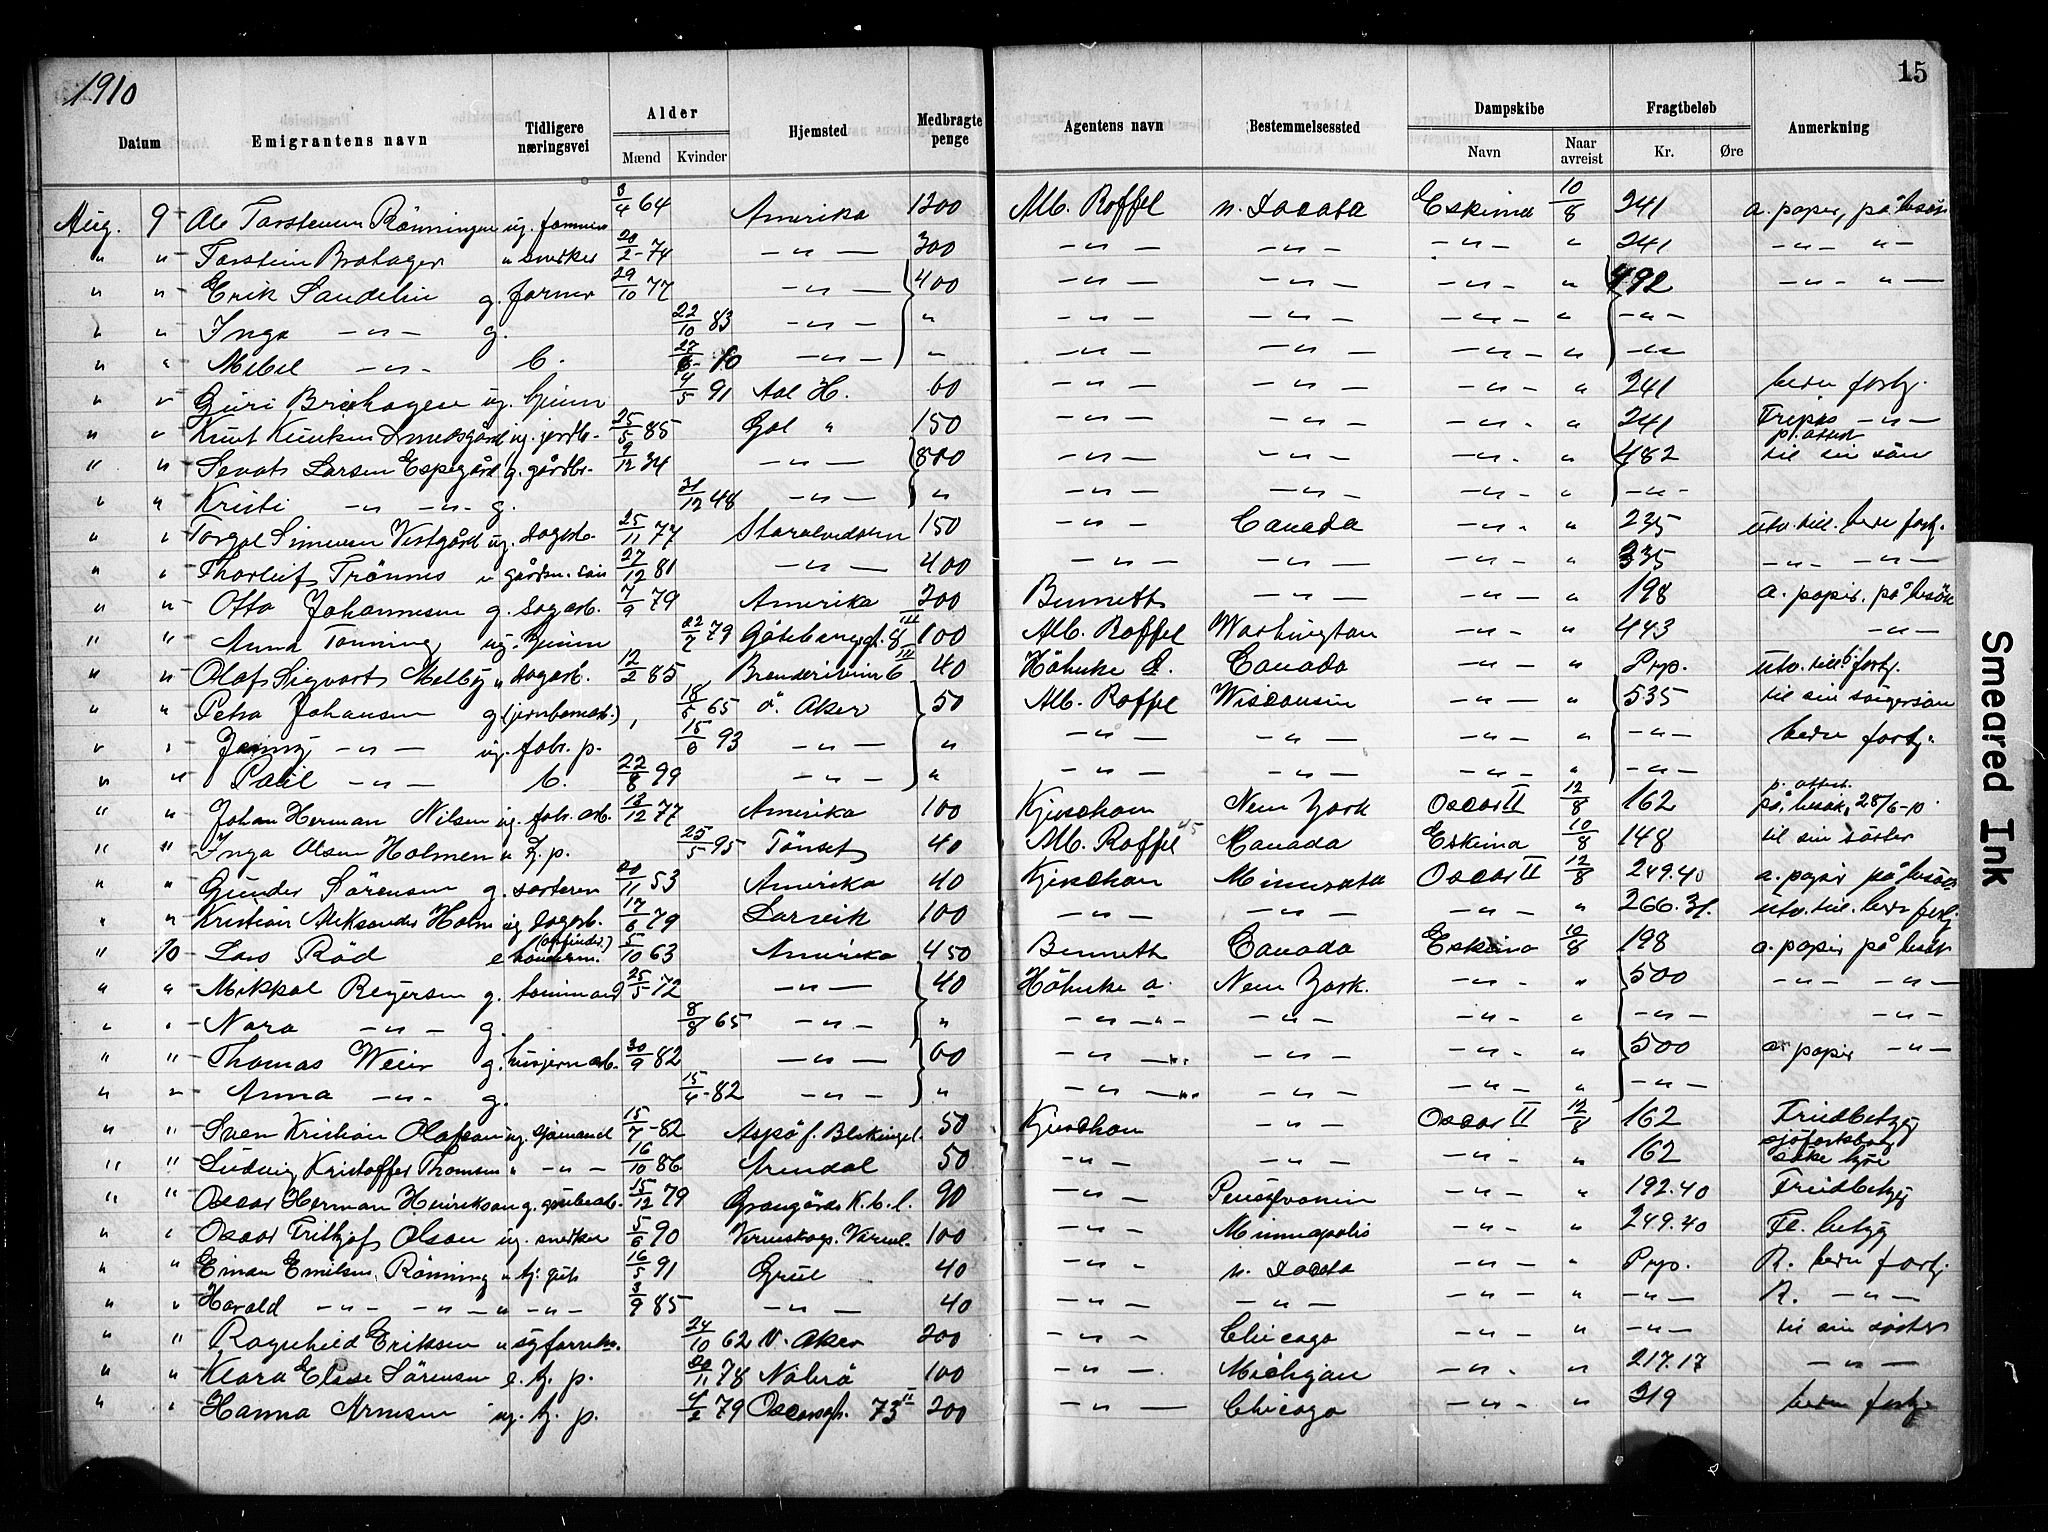 1910
15
Datum Emigrantens navn Tidligere næringsvei Alder Mænd Kvinder Hjemsted Medbragte penge Agentens navn Bestemmelsessted Dampskibe Navn Naar avreist Fragtbeløb Kr. Øre Anmerkning
Aug. 9 Ole Torstensen Rönningen ug. farmer 3/4 64 Amerika 1200 Alb. Roffel n. Dacota Eskimo 10/8 241 a. papir, på besök
" " Torstein Brotager " snekker 20/2-74 — " — 300 — " — — " — — " — " 241 — " — " —
" " Erik Sandelin g. farmer 29/10 77 — " — 400 — " — — " — — " - " 492 — " - " —
" " Inga — " — g. 22/10 83 — " — " — " — — " — — " — " — " —
" " Mebel — " — b. 27/6-10 — " — " — " — — " — — " — " — " —
" " Guri Brekhagen ug. tjenm 4/5 91 Aal H. 60 — " — — " — — " — " 241 bedre fortj.
" " Knut Knutsen ug. jordb. 25/5 85 Gol " 150 — " — — " — — " — " 241 Trepas — " —
p. attest
" " Sevat Larsen Espegård g. gårdbr. 9/12 34 — " — 800 — " — — " — — " - " 482 til sin sön
" " Kristi — " — " — g. 31/12 48 — " — " — " — — " — — " — " — " —
" " Torgal Simensen Vestgård ug. dagarb. 25/11 77 Storelvedalen 150 — " — Canada — " - " 235 utv. till. bedre fortj.
" " Thorleif Trönnes " gårdm. sön 27/12 81 — " — 400 — " — — " — — " — " 335 — " — " —
" " Otto Johannesen g. dagarb. 7/9 79 Amerika 200 Bennett — " — — " — " 198 a. papir. på besök
" " Anna Tonning ug. tjenm 22/7 79 Göteborggt. 8 III 100 Alb. Roffel Washington — " — " 443 — " —
" " Olaf Sigvart Melby " dagarb. 12/2 85 Brenderiveien 6 III 40 Höhnke A. Canada — " — " Prp. utv. till. b. fortj.
" " Petra Johansen g. (jernbanearb.) 18/5 65 ö. Aker 50 Alb. Roffel Wisconsin — " — " 535 til sin svigersön
" " Jenny — " — ug. fabr. p. 15/6 93 — " — " — " — — " — — " — " — " — bedre fortj.
" " Paul — " — b. 22/8 99 — " — " — " — — " — — " — " — " —
p. attest.
" " Johan Herman Nilsen ug. fabr. arb. 13/12 77 Amerika 100 Kjuschan New York Oscar II 12/8 162 på besök 28/6-10
" " Inga Olsen Holmen " t. p. 25/5 95 Tönset 40 Alb. Roffel Canada Eskimo 10/8 148 til sin söster
" " Gunder Sörensen g. sorterer 20/11 53 Amerika 40 Kjuschan Minnesota Oscar II 12/8 249.40 a. papir på besök
" " Kristian Aleksander Holm ug. dagarb. 17/6 79 Larvik 100 — " — — " — — " — " 266.31. utv. till. bedre fortj.
" 10 Lars Röd e. 5/10 63 Amerika 450 Bennett Canada Eskimo 10/8 198 a. papir på besök
" " Mikkal Reyersen g. tömmerm. 25/5 72 — " — 40 Höhnke a. New York. — " - " 500 — " — — " —
" " Nora — " — g. 8/8 65 — " — " — " — " - — " — — " - " — " — — " —
" " Thomas Weir g. husjernarb. 30/9 82 — " — 60 — " — " — " — — " — " 500 a. papir — " —
" " Anna — " - g. 15/4-82 — " — " — " — " — " — — " — " — " —
" " Sven Kristian Olafson ug. sjömand 15/7-82 Aspö f. Blekingel. 50 Kjuschan — " — Oscar II 12/8 162 Friedbetyg
sjöfartsbog
" " Ludvig Kristoffer Thomsen " — " — 16/10 86 Arendal 50 — " — — " — — " - " 162 söke hyre
" " Oscar Herman Henrikson g. grubearb. 15/12 79 Grangärde K.b.l. 90 — " — Pensylvanien — " — " 192.40 Friedbetyg
" " Oscar Frithjof Olson ug. snekker 5/6 90 Vermskog. Verml. 100 — " — Minneapolis — " - " 249.40 Fl. betyg
" " Einar Emilsen Rönning " tj. gut 16/5 91 Grue 40 — " — n. Dacota — " — " Prp. A. bedre fortj.
" " Harald — " - — " — " — " — 3/9 85 — " — 40 — " — — " — — " — " — " — A. — " —
" " Ragnhild Eriksen " syforretn. 24/10 62 V. Aker 200 — " — Chicago — " — " — " — til sin söster
" " Klara Elise Sörensen e. tj. p. 20/11 78 Nöterö 100 — " — Michigan — " - " 217.17 — " —
" " Hanna Arnesen ug. tj. p. 4/2 79 Oscarsgt. 73 II 200 — " — Chicago — " — " 219 bedre fortj.
Smeared Ink